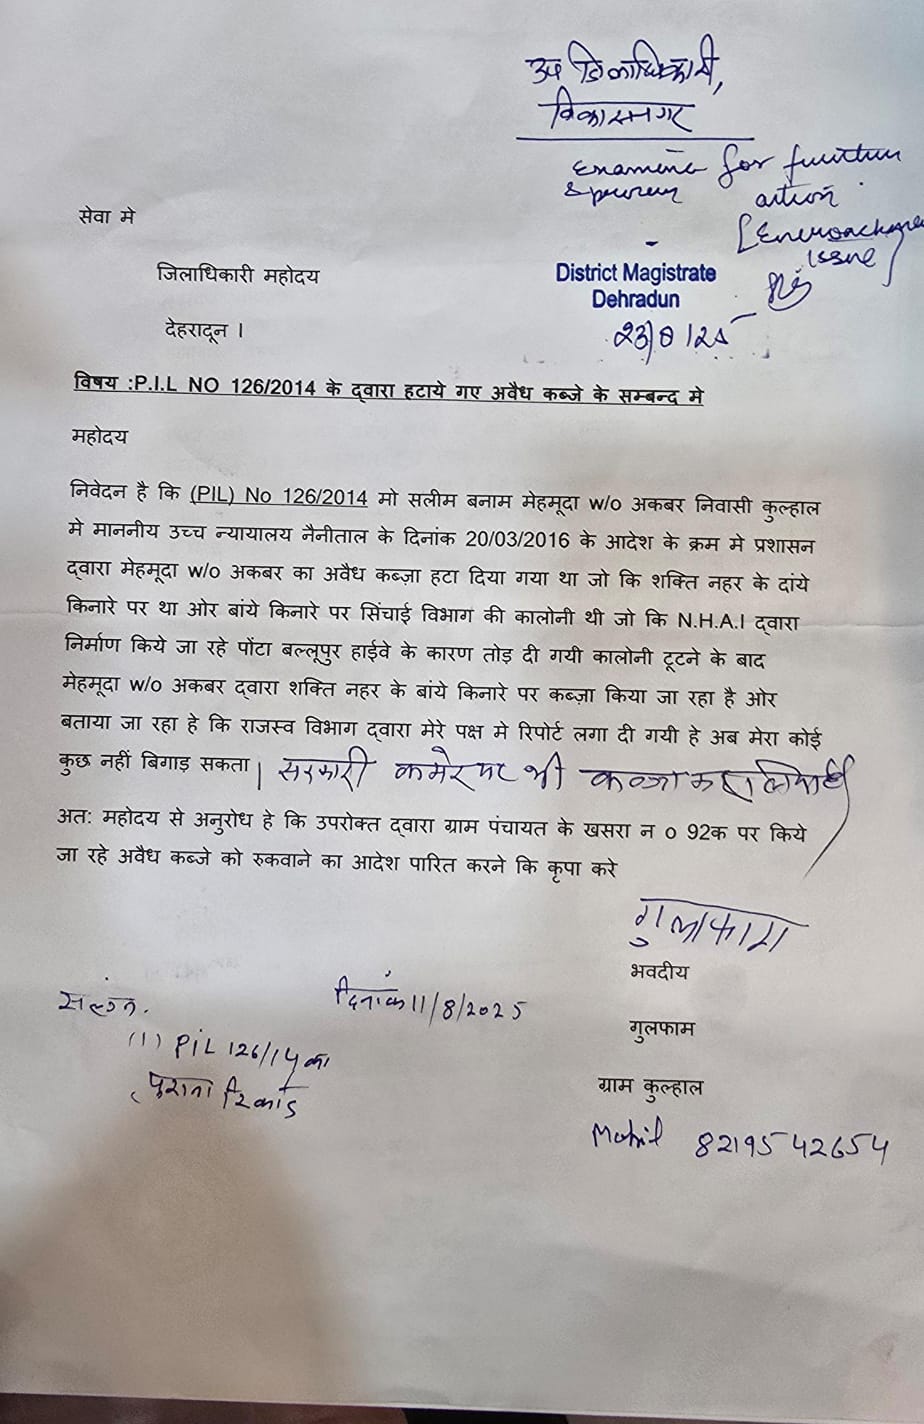 उप जिलाधिकारी,
विकासनगर
Examine for
action
[Encroachment
issue]
सेवा मे
जिलाधिकारी महोदय
District Magistrate
Dehradun
देहरादून ।
23/8/25
विषय :P.I.L NO 126/2014 के द्वारा हटाये गए अवैध कब्जे के सम्बन्द मे
महोदय
निवेदन है कि (PIL) No 126/2014 मो सलीम बनाम मेहमूदा w/o अकबर निवासी कुल्हाल
मे माननीय उच्च न्यायालय नैनीताल के दिनांक 20/03/2016 के आदेश के क्रम मे प्रशासन
द्वारा मेहमूदा w/o अकबर का अवैध कब्ज़ा हटा दिया गया था जो कि शक्ति नहर के दांये
किनारे पर था ओर बांये किनारे पर सिंचाई विभाग की कालोनी थी जो कि N.H.A.I द्वारा
निर्माण किये जा रहे पोंटा बल्लूपुर हाईवे के कारण तोड़ दी गयी कालोनी टूटने के बाद
मेहमूदा w/o अकबर द्वारा शक्ति नहर के बांये किनारे पर कब्ज़ा किया जा रहा है ओर
बताया जा रहा हे कि राजस्व विभाग द्वारा मेरे पक्ष मे रिपोर्ट लगा दी गयी हे अब मेरा कोई
कुछ नहीं बिगाड़ सकता | सरकारी कमरे पर भी कब्जा कर लिया है
अत: महोदय से अनुरोध हे कि उपरोक्त द्वारा ग्राम पंचायत के खसरा न o 92क पर किये
जा रहे अवैध कब्जे को रुकवाने का आदेश पारित करने कि कृपा करे
गुलफाम
भवदीय
संलग्न.
दिनांक 11/8/2025
गुलफाम
(1) PIL 126/14 का
पुराना रिकार्ड
ग्राम कुल्हाल
Mobil 8219542654